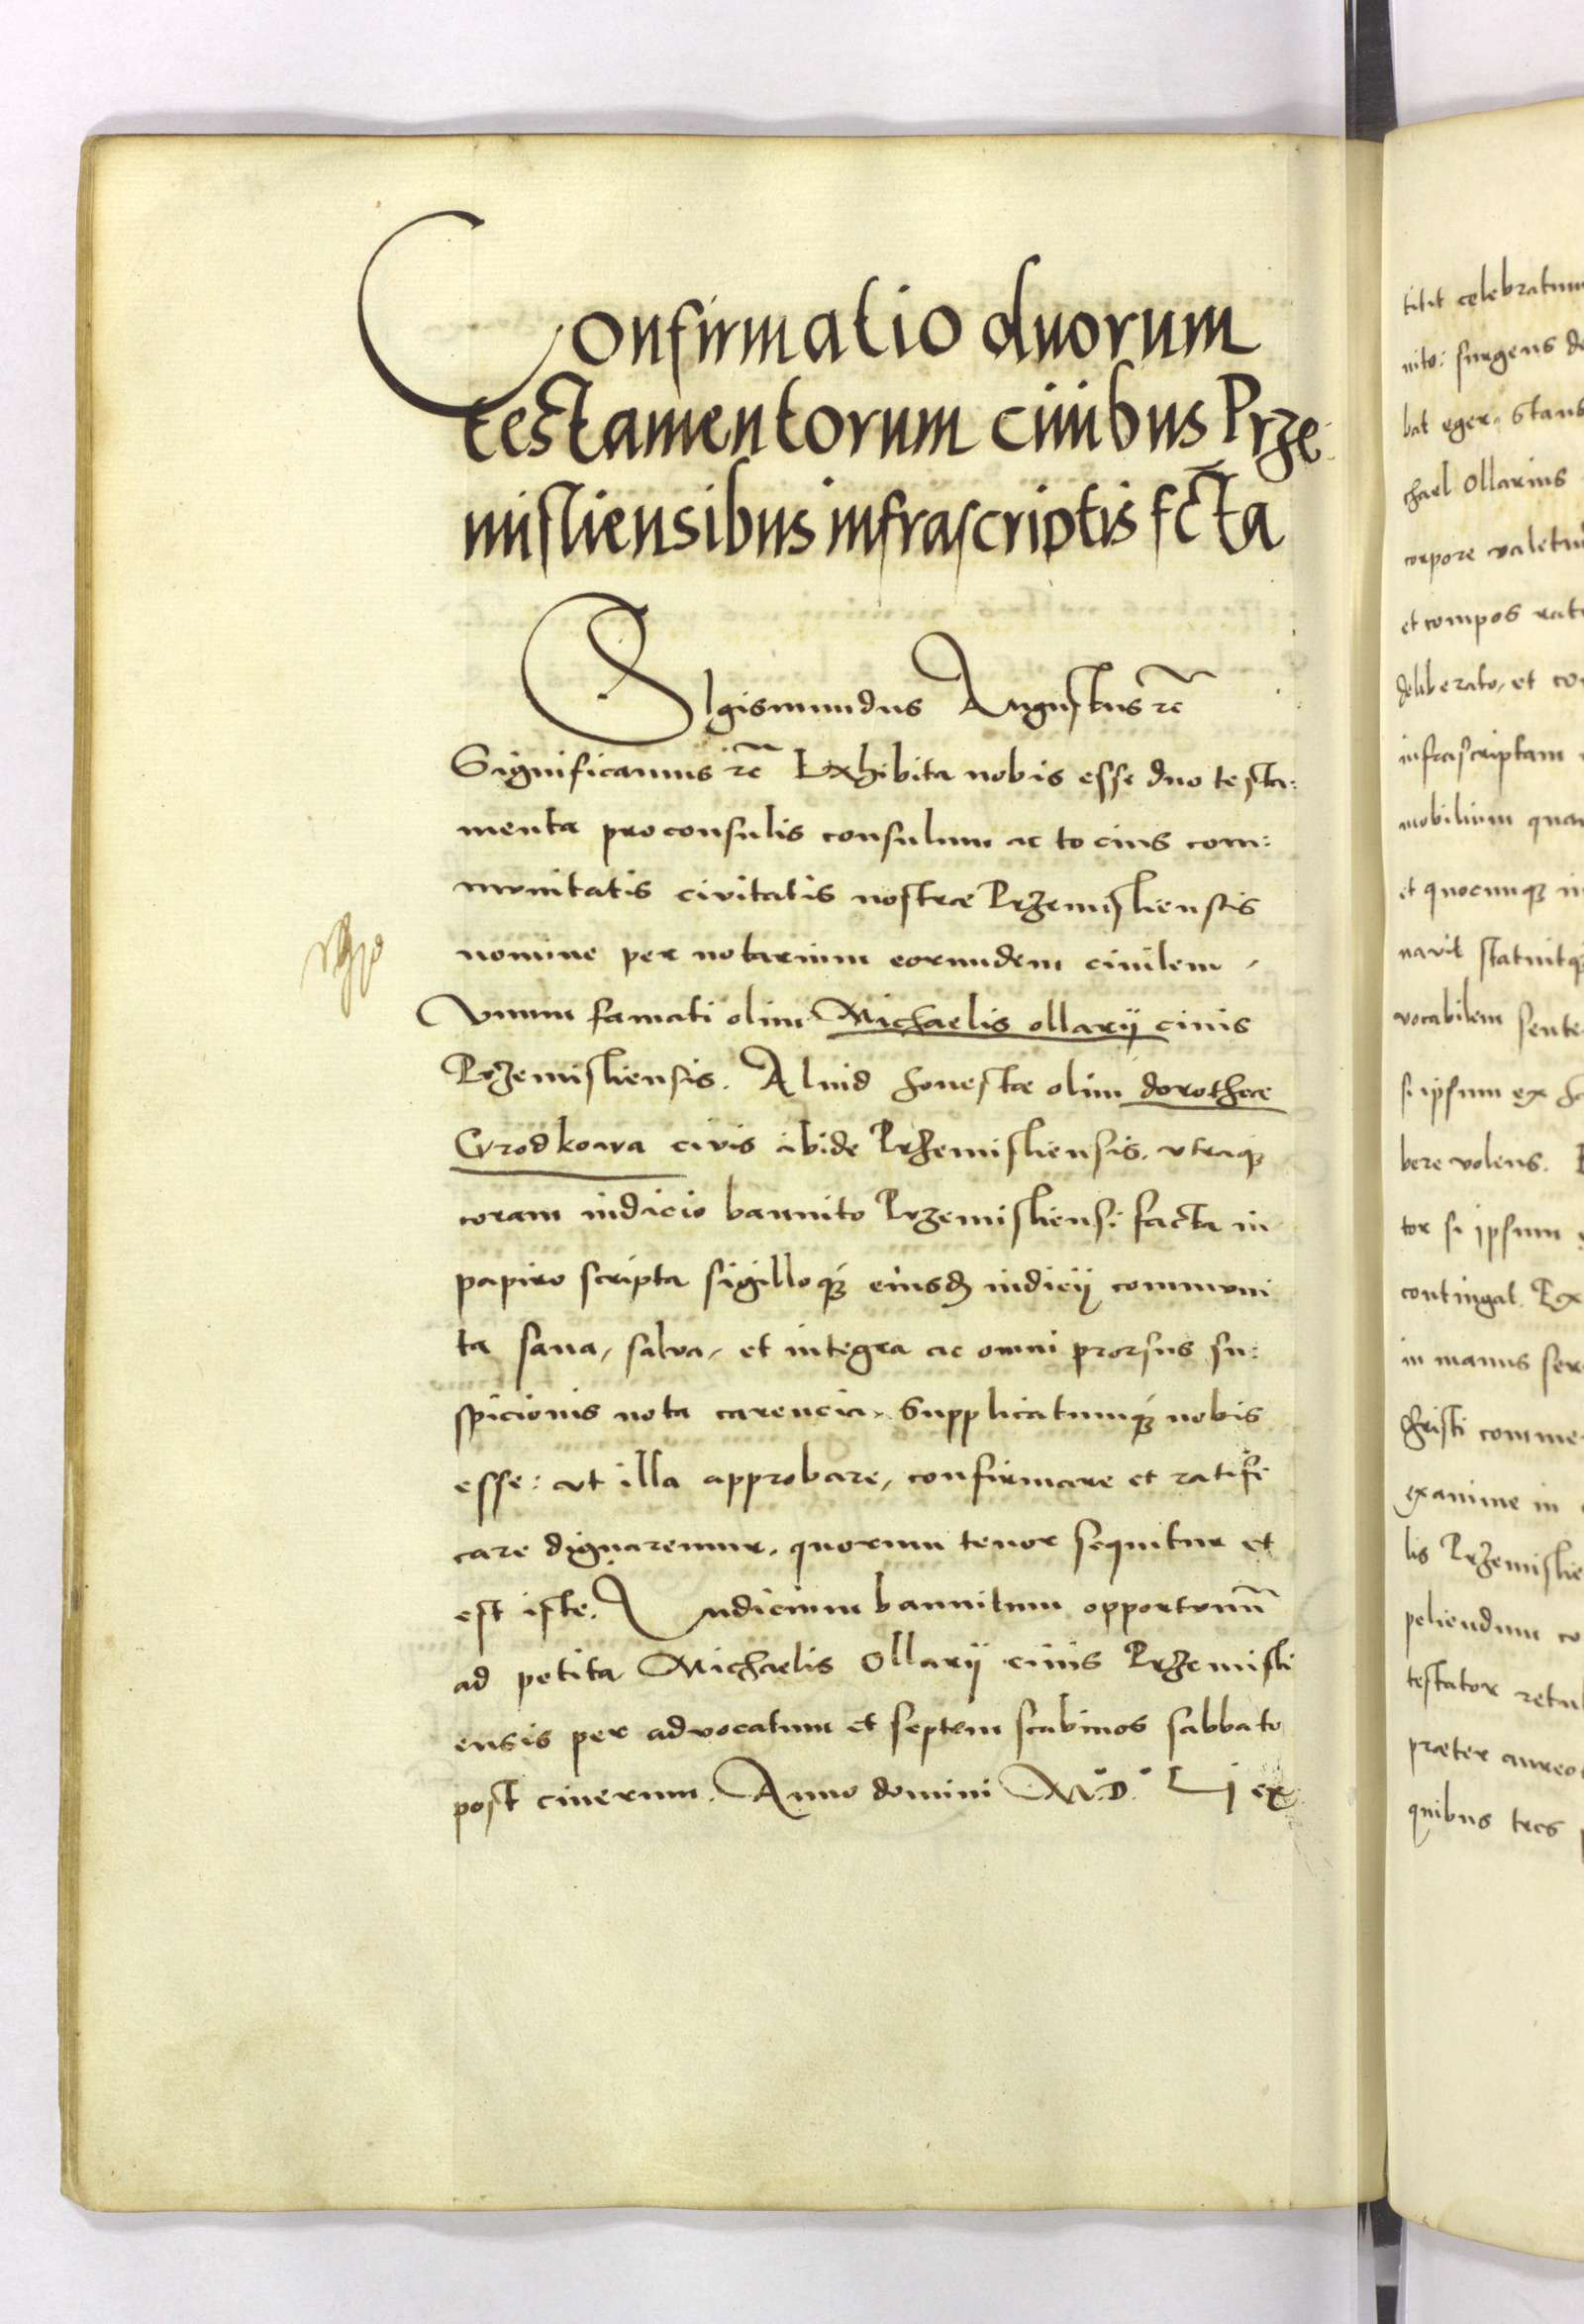 Confirmatio duorum
testamentorum ciuibus Prze:
misliensibus infrascriptis fcta
SIgismundus Augustus rc
Significamus rc Exhibita nobis esse duo testa:
menta proconsulis consulum ac tocius com:
mvnitatis civitatis nostræ Przemisliensis
nomine per notarium eorundem ciuilem,
Vnum famati olim Michaelis ollarij ciuis
Przemisliensis. Aluid honestæ olim dorotheæ
Grodkowa civis ibide Przemisliensis, vtraqꝫ
coram iudicio bannito Przemisliensi facta in
papiro scripta sigilloqꝫ eiusd iudicij commvni
ta sana, salva, et integra ac omni prorsus su:
spicionis nota carencia, Supplicatumqꝫ nobis
esse: vt illa approbare, confirmare et ratifi
care dignaremur, quorum tenor sequitur et
est iste. Iudicium bannitum opportvnū
ad petita Michaelis Ollarij ciuis Przemisli
ensis per advocatum et septem scabinos sabbato
post cinerum. Anno domini M.D. Lj ex
titit celebratum
nito: surgens de
bat eger, stans
chael Ollarius
corpore valetu
et compos rati
deliberato, et co
infrascriptam
mobilium qua
et quocunqꝫ in
navit statuitqꝫ
vocabilem sente
si ipsum ex
bere volens.
tor si ipsum
contingat. Ex
in manus ser
Christi comme
examine in
lis Przemislie
peliendum co
testator retu
præter aureo
quibus tres